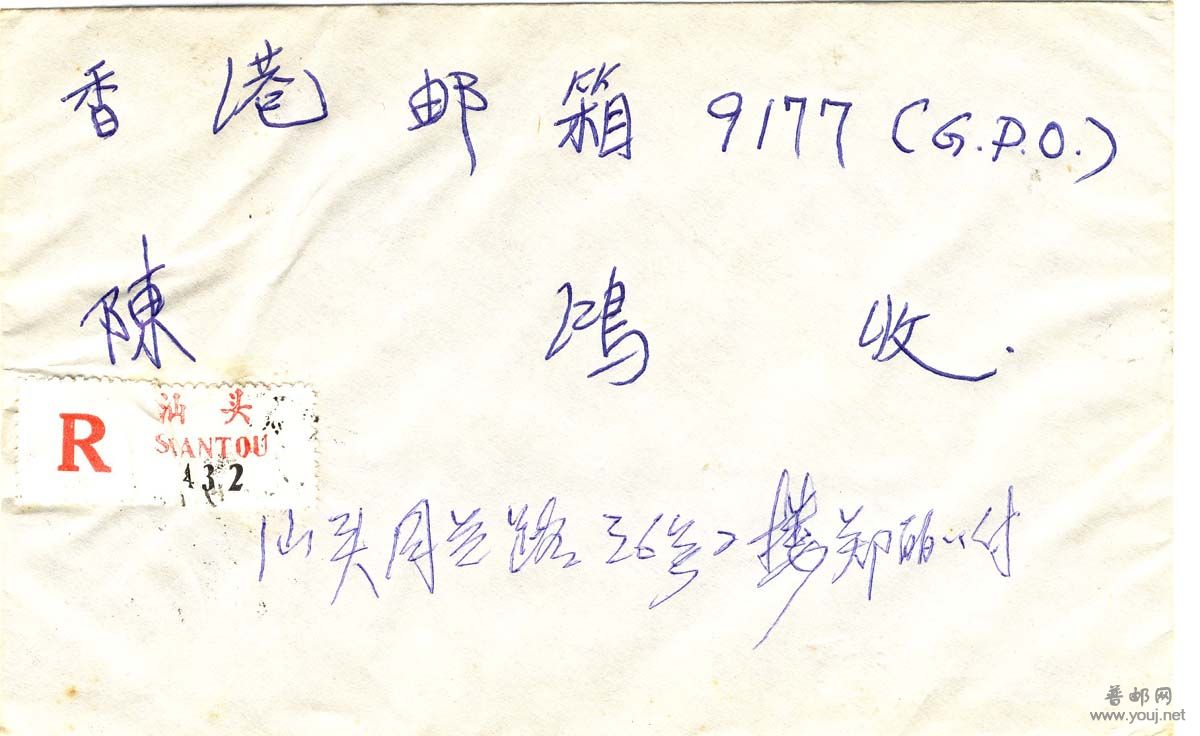 香港邮箱9177(G.P.O.)
陳鴻收.
R
汕头
SHANTOU
432
汕头月兰路36号2楼郑 付
普邮网
www.youj.net